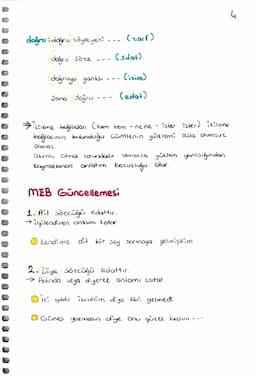 4
doğru: doğru söyleyeni --- (zarf)
doğru söze --- (sıfat)
doğruyu yanlışı --- (isim)
Sana doğru --- (edat)
→ İkileme bağlaçları (hem hem - ne ne - ister ister)
bağlacının bulunduğu cümlenin yüklemi asla olumsuz
olamaz.
Olumlu olmak zorundadır olmazsa yüklem yanlışlığından
kaynaklanan anlatım bozukluğu olur.
MEB Güncellemesi
1. Ait sözcüğü edattır.
→ İlgilendiren anlamı katar
Kendime ait bir şey sormaya gelmiştim
2. Diye sözcüğü edattır.
→ Adında veya diyerek anlamı katar
İki yıldır İbrahim diye biri gelmedi
Güneş yakmasın diye onu güzel